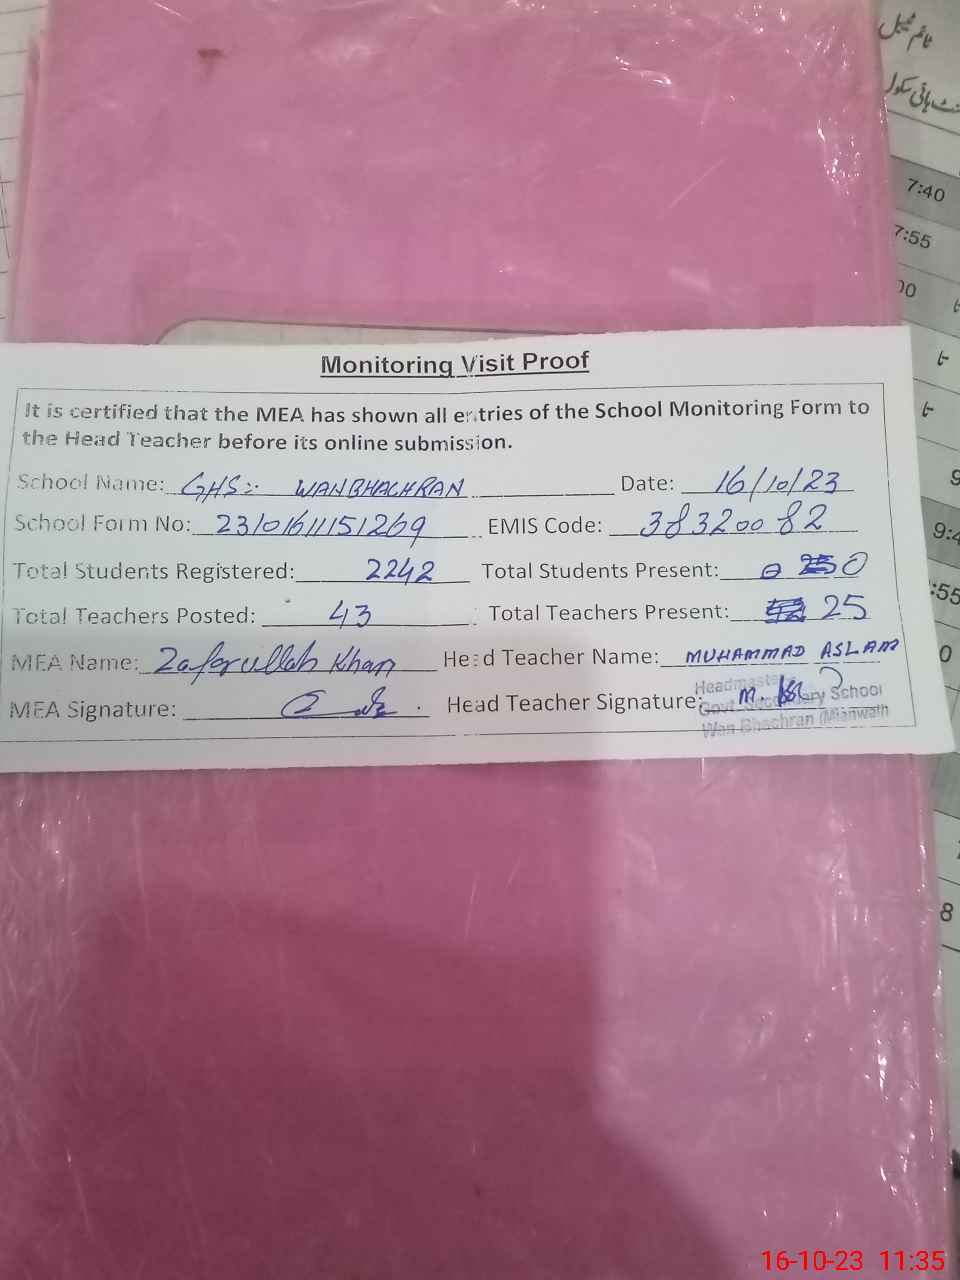 ٹائم ٹیبل
ہائی سکول
7:40
7:55
00
9:4
:55
0
8
Monitoring Visit Proof
It is certified that the MEA has shown all entries of the School Monitoring Form to
the Head Teacher before its online submission.
School Name: GHS:- WANBHACHRAN Date: 16/10/23
School Form No: 23101611151269 EMIS Code: 38320082
Total Students Registered: 2242 Total Students Present: 0
Total Teachers Posted: 43 Total Teachers Present: 25
MEA Name: Zafarullah Khan Head Teacher Name: MUHAMMAD ASLAM
MEA Signature: Head Teacher Signature:
Headmaster
Govt. Secondary School
Wan Bhachran (Mianwali)
16-10-23 11:35